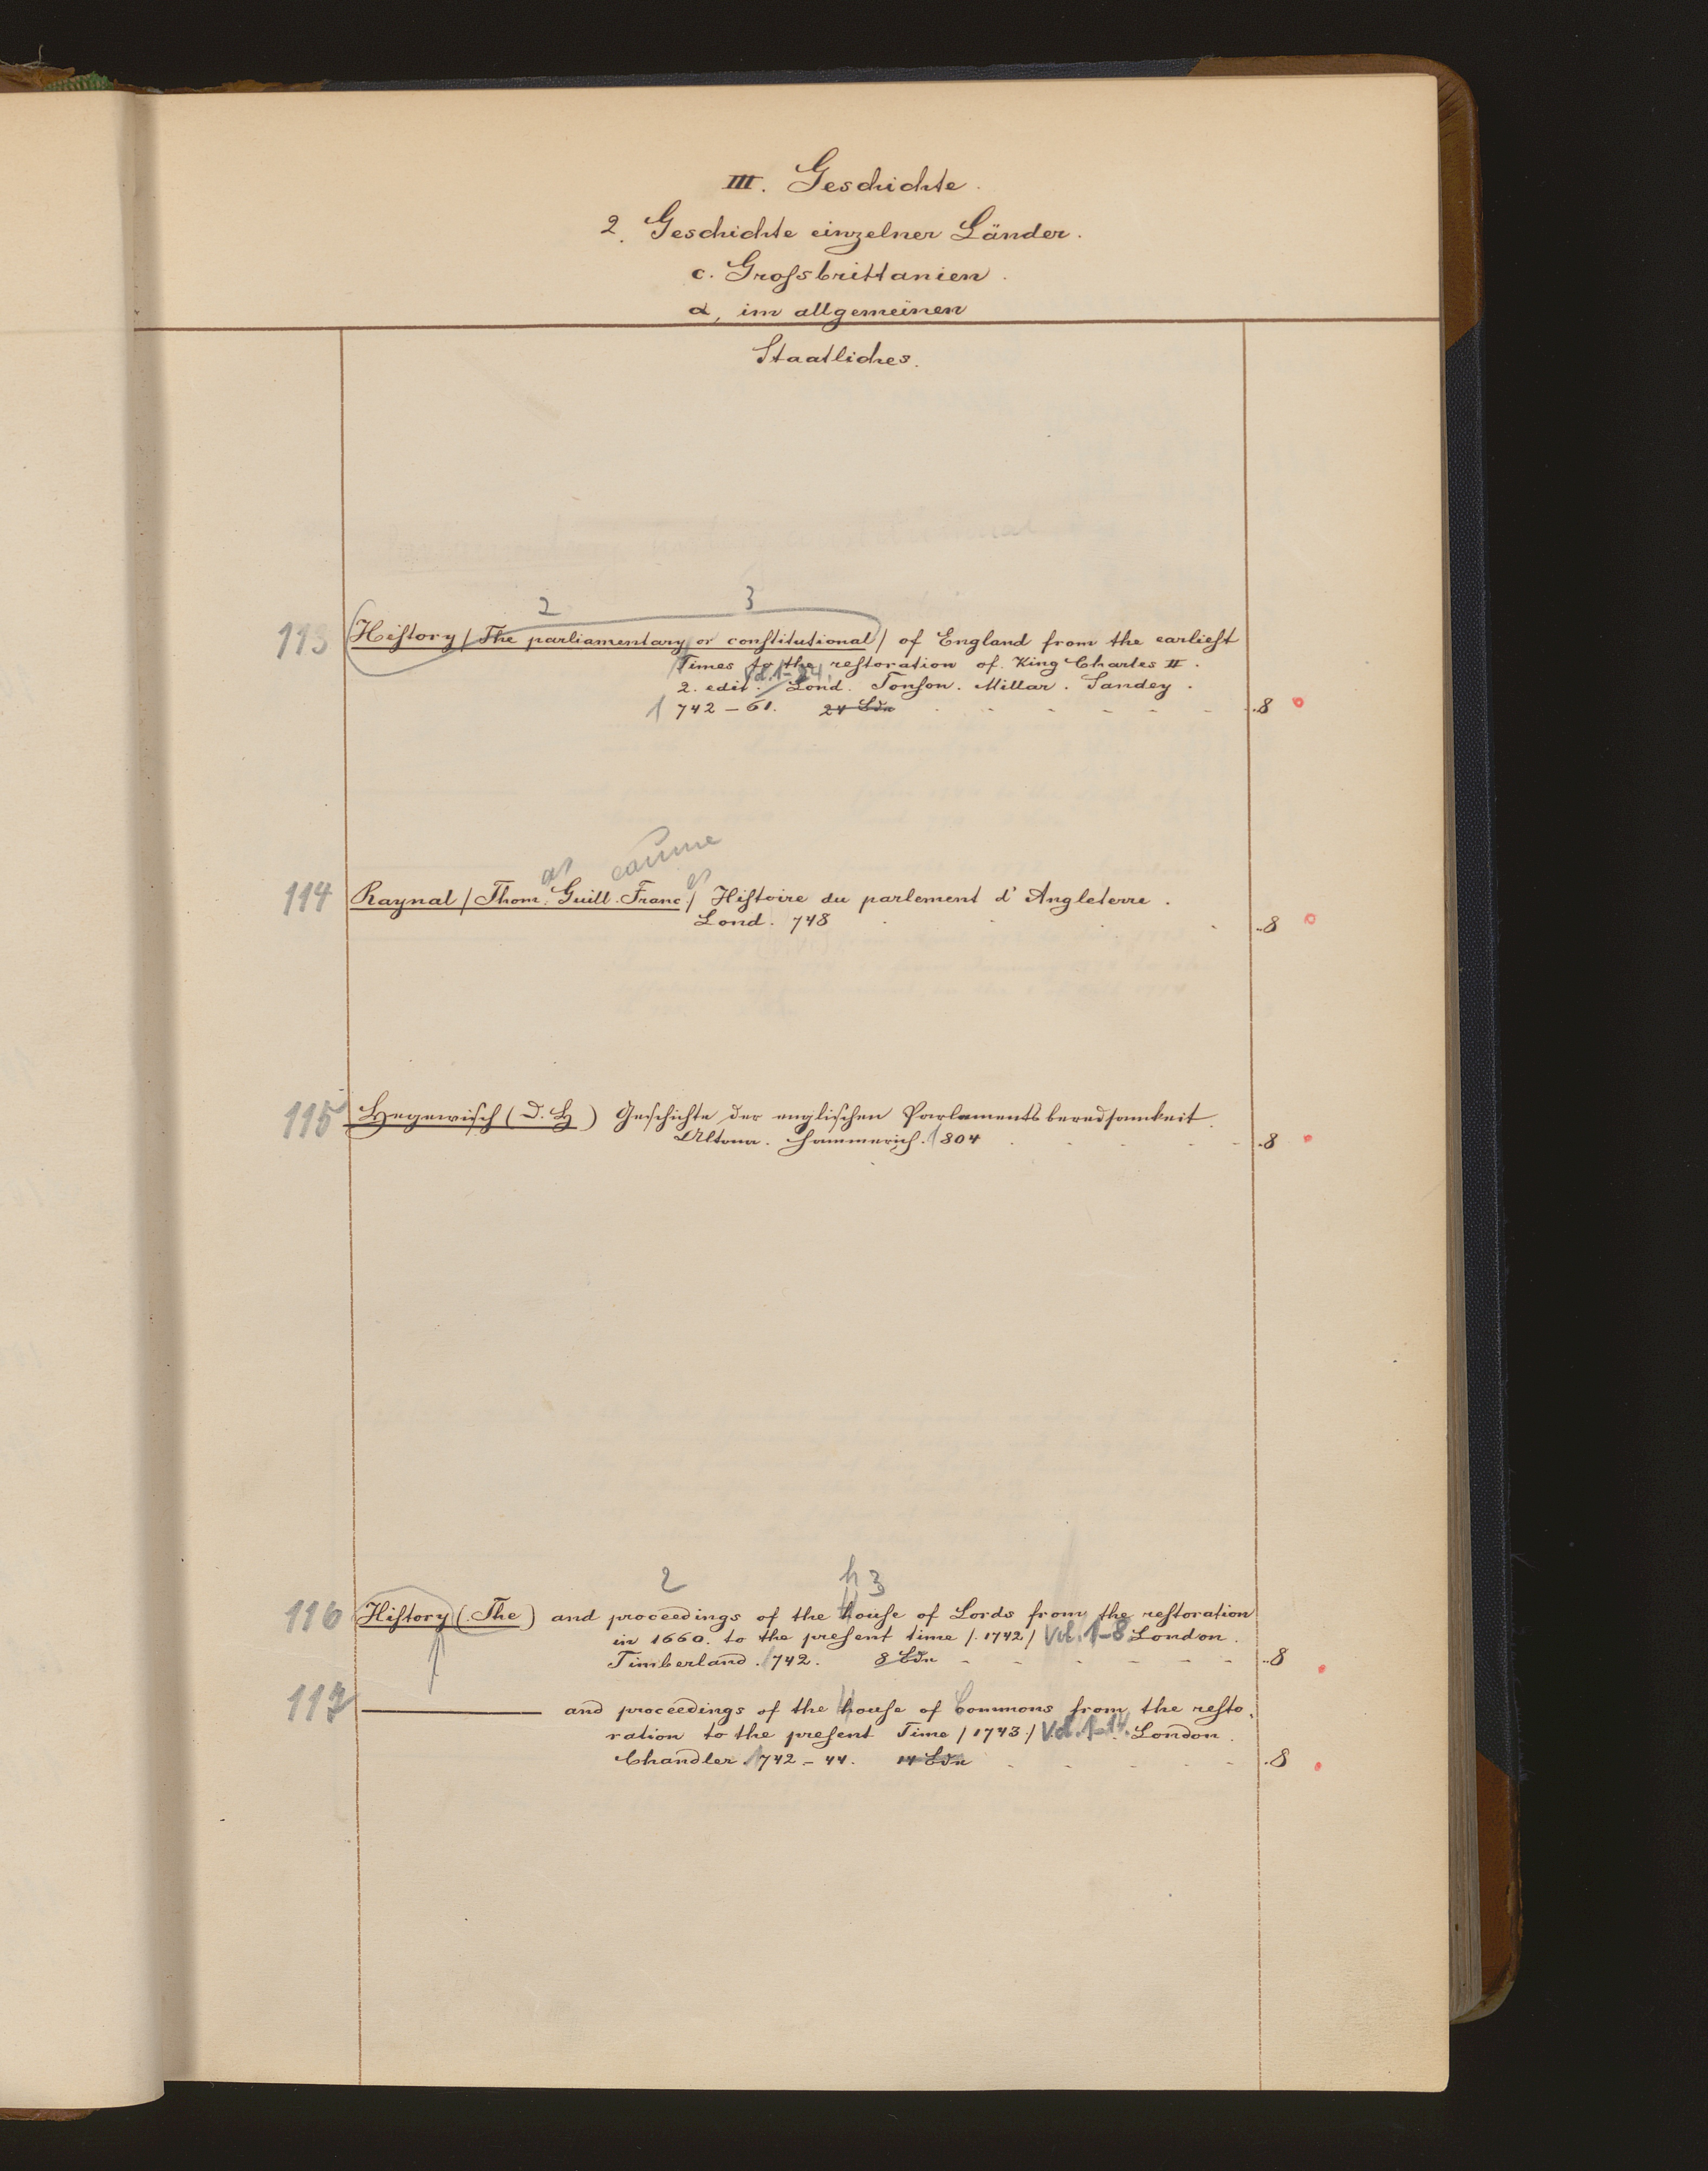 III. Geschichte.
2. Geschichte einzelner Länder.
c. Grossbrittanien.
α, im allgemeinen
Staatliches.
2 3
113 History / The parliamentary or constitutional / of England from the earliest
Times to the restoration of King Charles II.
Vol. 1-24.
2. edit. Lond. Tonson. Millar. Sandey.
1742-61. 24 Bdn 8
114 Raynal / Thom. Guill. Franc. / Histoire du parlement d'Angleterre.
Lond. 748 8
115 Hegewisch (D. H) Geschichte der englischen Parlamentsberedsamkeit.
Altona. Hammerich. 1804 8
2 h 3
116 History (The) and proceedings of the House of Lords from the restoration
in 1660. to the present time /.1742/ Vol. 1-8 London.
Timberland. 1742. 8 Bdn 8
117 ——— and proceedings of the House of Commons from the resto-
ration to the present Time / 1743./ Vol. 1-14. London.
Chandler. 1742-44. 14 Bdn 8